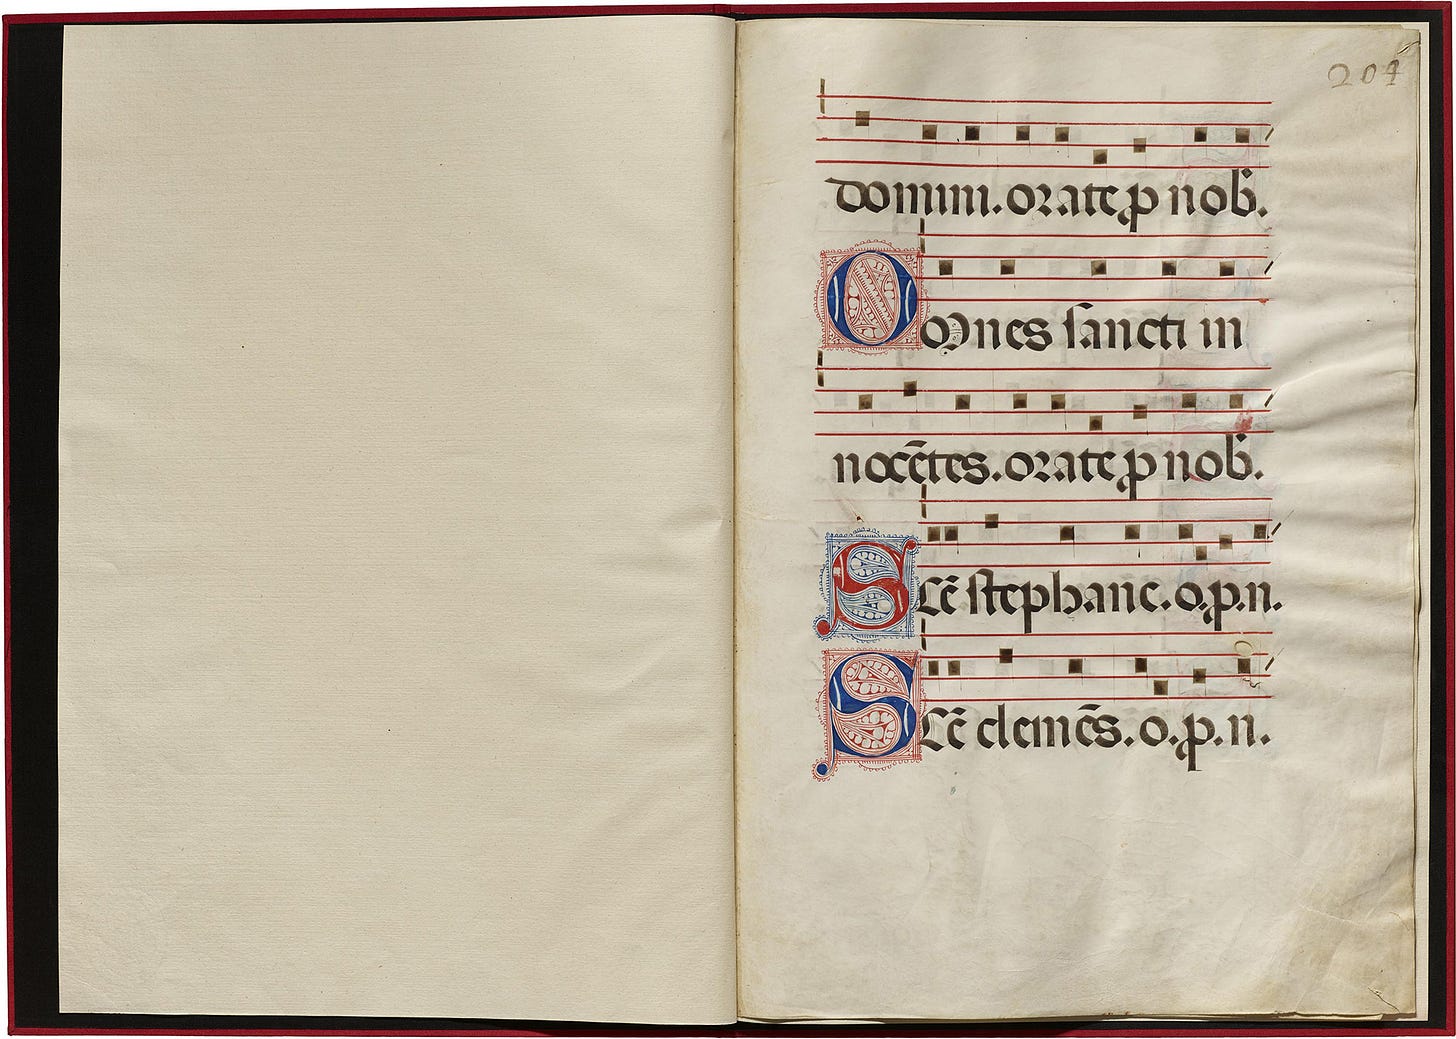 204
domini. orate p nob.
Omnes sancti in
nocẽtes. orate p nob.
Scẽ stephane. o. p. n.
Scẽ clemẽs. o. p. n.